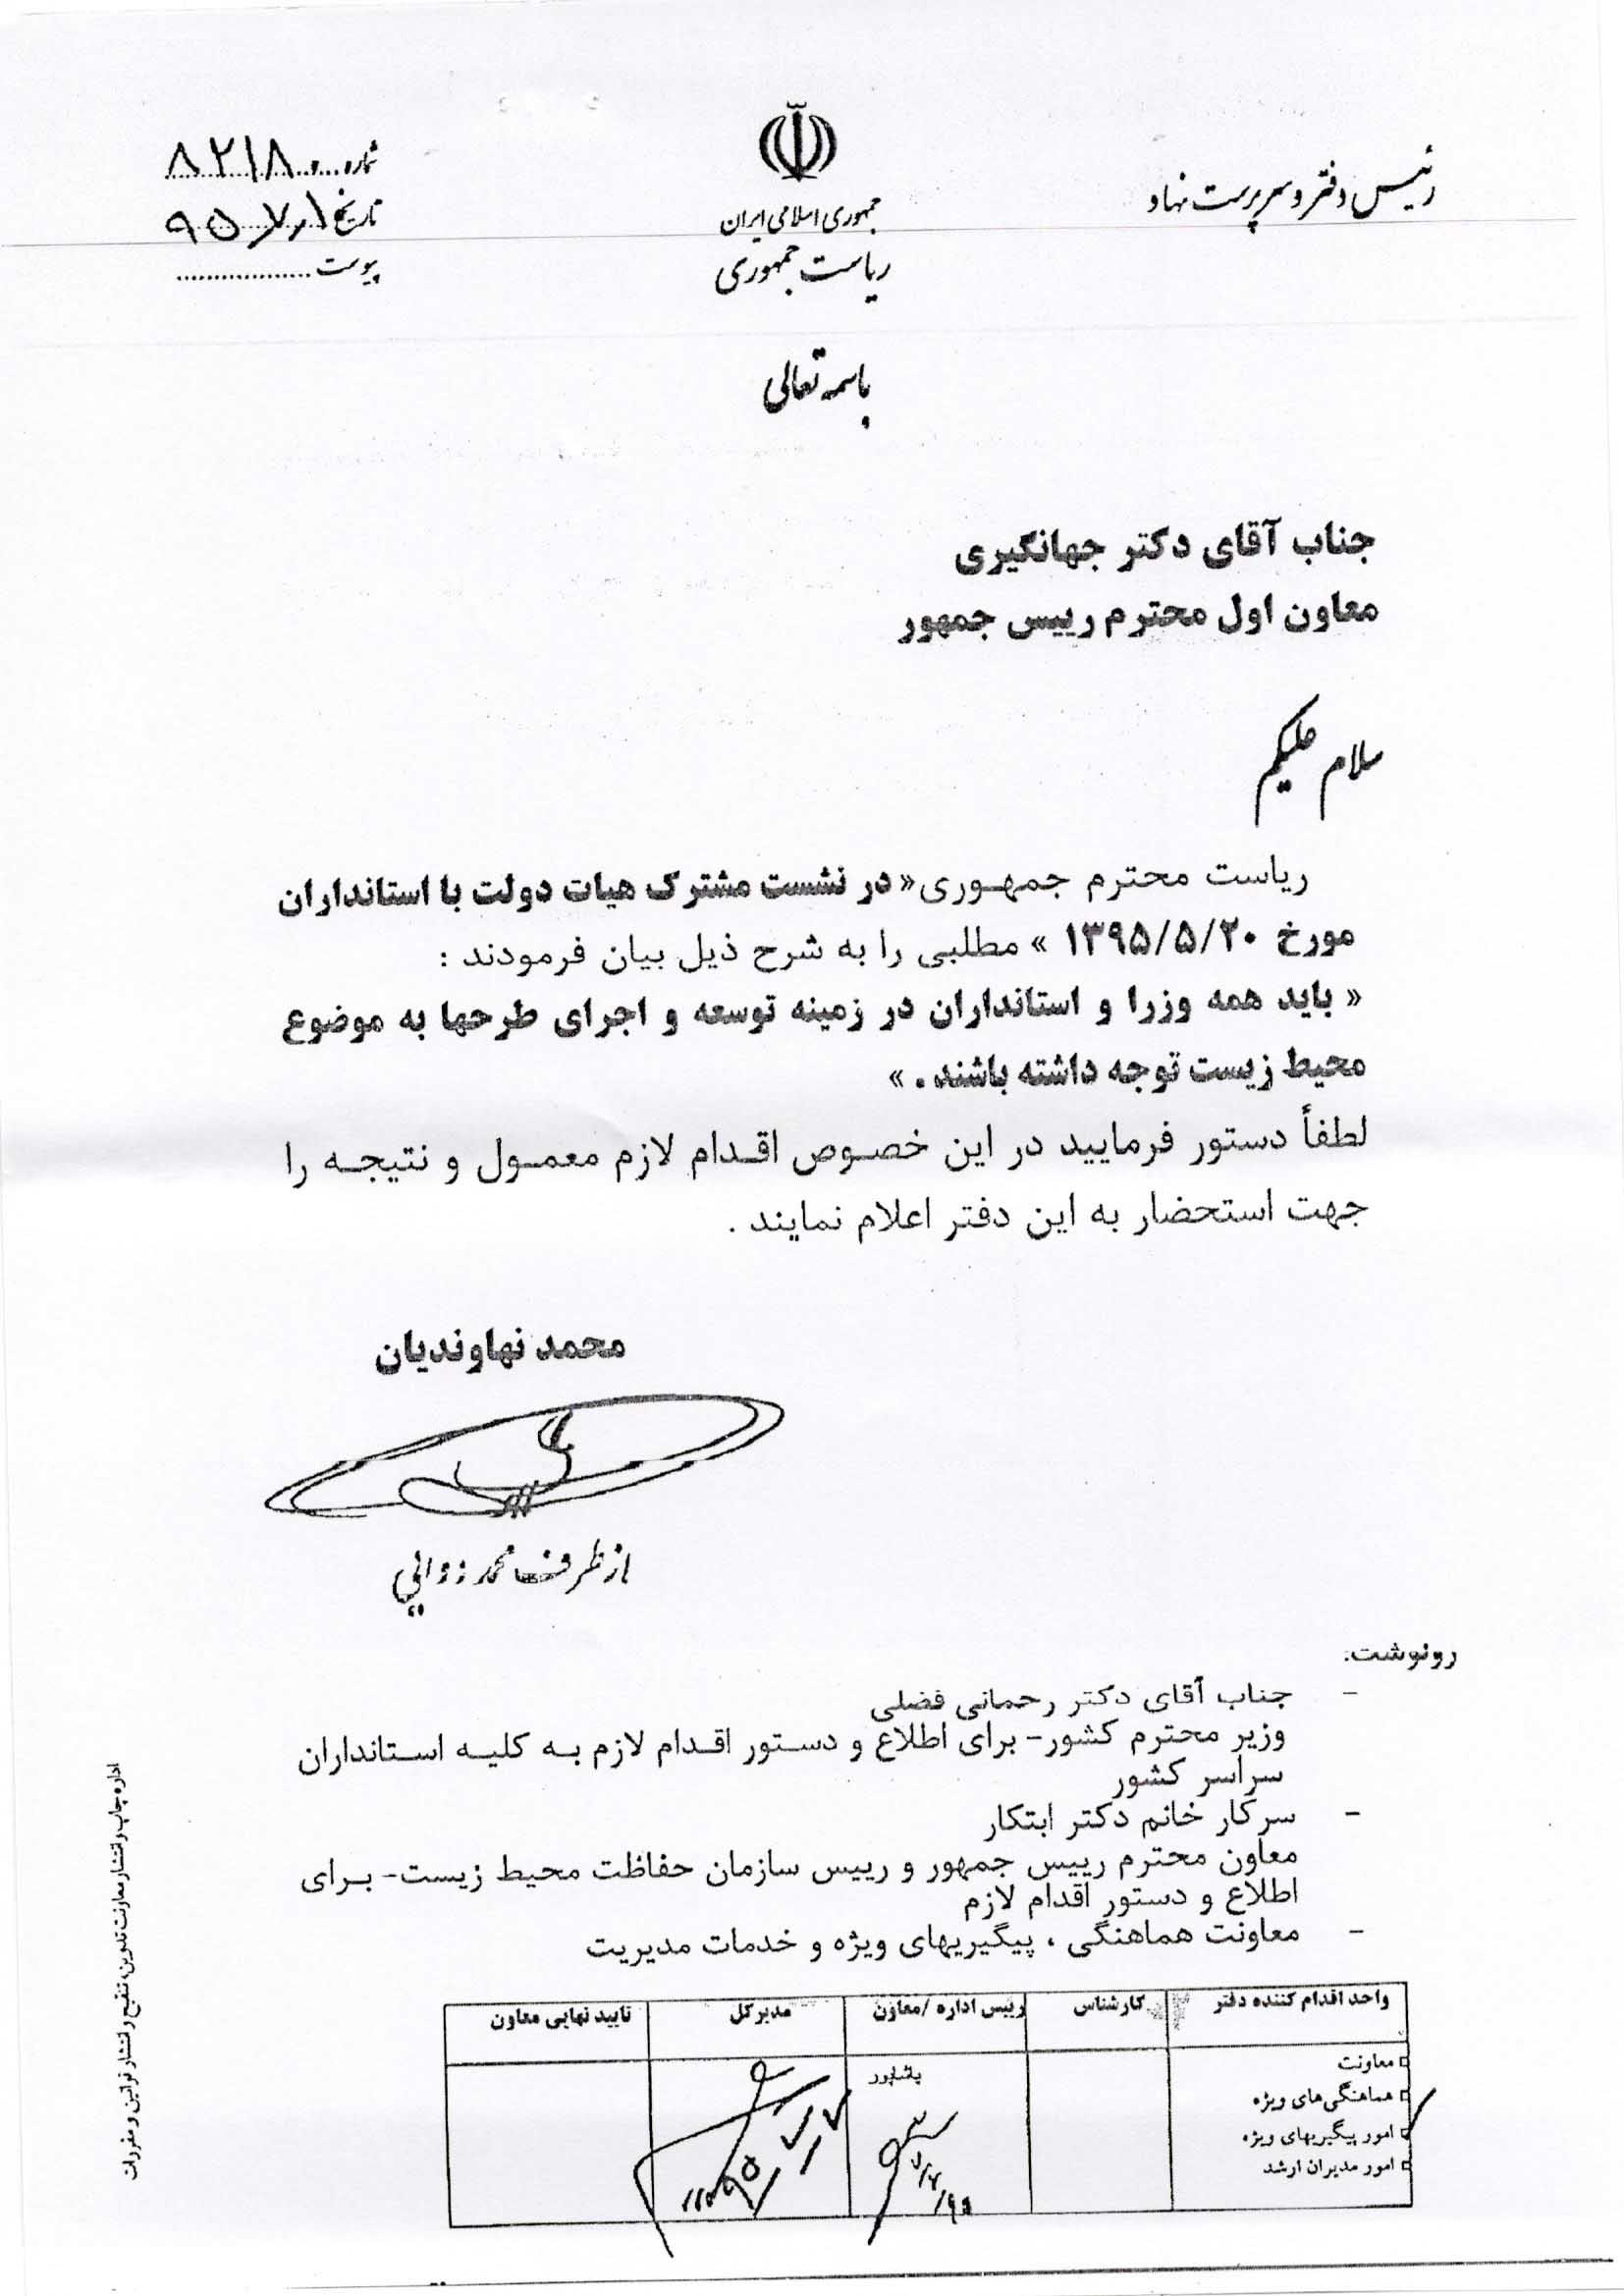 رئیس دفتر و سرپرست نهاد
جمهوری اسلامی ایران
ریاست جمهوری
شماره ۸۲۱۸۰
تاریخ ۹۵/۷/۱
پیوست
باسمه تعالی
جناب آقای دکتر جهانگیری
معاون اول محترم رییس جمهور
سلام علیکم
ریاست محترم جمهوری« در نشست مشترک هیات دولت با استانداران
مورخ ۱۳۹۵/۵/۲۰ » مطلبی را به شرح ذیل بیان فرمودند :
« باید همه وزرا و استانداران در زمینه توسعه و اجرای طرحها به موضوع
محیط زیست توجه داشته باشند . »
لطفاً دستور فرمایید در این خصوص اقدام لازم معمول و نتیجه را
جهت استحضار به این دفتر اعلام نمایند .
محمد نهاوندیان
از طرف محمد
رونوشت:
- جناب آقای دکتر رحمانی فضلی
وزیر محترم کشور- برای اطلاع و دستور اقدام لازم به کلیه استانداران
سراسر کشور
- سرکار خانم دکتر ابتکار
معاون محترم رییس جمهور و رییس سازمان حفاظت محیط زیست- برای
اطلاع و دستور اقدام لازم
- معاونت هماهنگی ، پیگیریهای ویژه و خدمات مدیریت
واحد اقدام کننده دفتر کارشناس رییس اداره /معاون مدیرکل تایید نهایی معاون
معاونت
هماهنگی‌های ویژه
امور پیگیریهای ویژه
امور مدیران ارشد
پاشاپور
اداره چاپ و انتشار معاونت تدوین، تنقیح و انتشار قوانین و مقررات